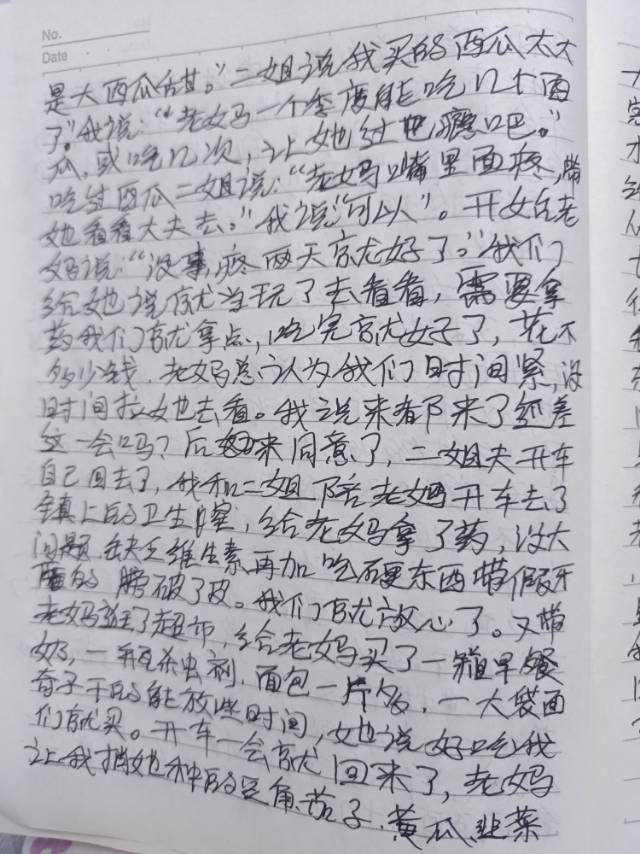 No.
Date
是大西瓜甜。”二姐说我买的西瓜太大
了。”我说:“老妈一个季度能吃几个西
瓜,或吃几次,让她过把瘾吧。”
吃过西瓜二姐说:“老妈嘴里面疼,带
她看看大夫去。”我说“可以”。开始老
妈说:“没事,疼两天就好了。”我们
给她说就当玩了去看看,需要拿
药我们就拿点,吃完就好了,花不
多少钱,老妈总认为我们时间紧,没
时间拉她去看。我说来都来了还差
这一会吗?后来同意了,二姐夫开车
自己回去了,我和二姐陪老妈开车去了
镇上的卫生室,给老妈拿了药,没大
问题,缺乏维生素,再加吃硬东西带假牙
的膀破了皮。我们就放心了。又带
老妈逛了超市,给老妈买了一箱早餐
奶,一瓶杀虫剂,面包一片多,一大袋面
干的能放些时间,她说好吃我
们就买。开车一会就回来了,老妈
让我捎她种的豆角、茄子、黄瓜、韭菜